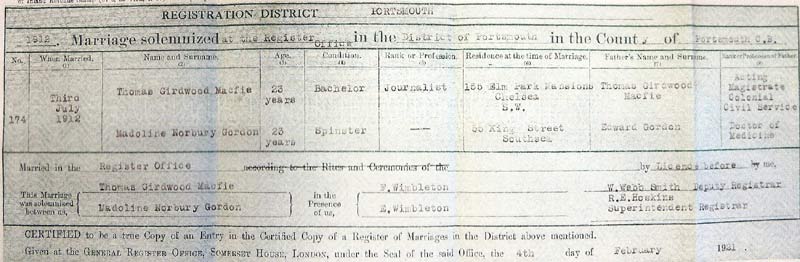 REGISTRATION DISTRICT PORTSMOUTH
1912. Marriage solemnized at the Register Office in the District of Portsmouth in the County of Portsmouth C.B.
No. When Married. Name and Surname. Age. Condition. Rank or Profession. Residence at the time of Marriage. Father's Name and Surname. Rank or Profession of Father.
174
Third July 1912
Thomas Girdwood Macfie 23 years Bachelor Journalist 155 Elm Park Mansions Chelsea S.W. Thomas Girdwood Macfie Acting Magistrate Colonial Civil Service
Madoline Norbury Gordon 23 years Spinster —— 55 King Street Southsea Edward Gordon Doctor of Medicine
Married in the Register Office according to the Rites and Ceremonies of the by Licence before by me,
This Marriage was solemnized between us, Thomas Girdwood Macfie Madoline Norbury Gordon in the Presence of us, F.Wimbleton E.Wimbleton W.Webb Smith Deputy Registrar R.E.Hoskins Superintendent Registrar
CERTIFIED to be a true Copy of an Entry in the Certified Copy of a Register of Marriages in the District above mentioned.
Given at the GENERAL REGISTER OFFICE, SOMERSET HOUSE, LONDON, under the Seal of the said Office, the 4th day of February 1921.